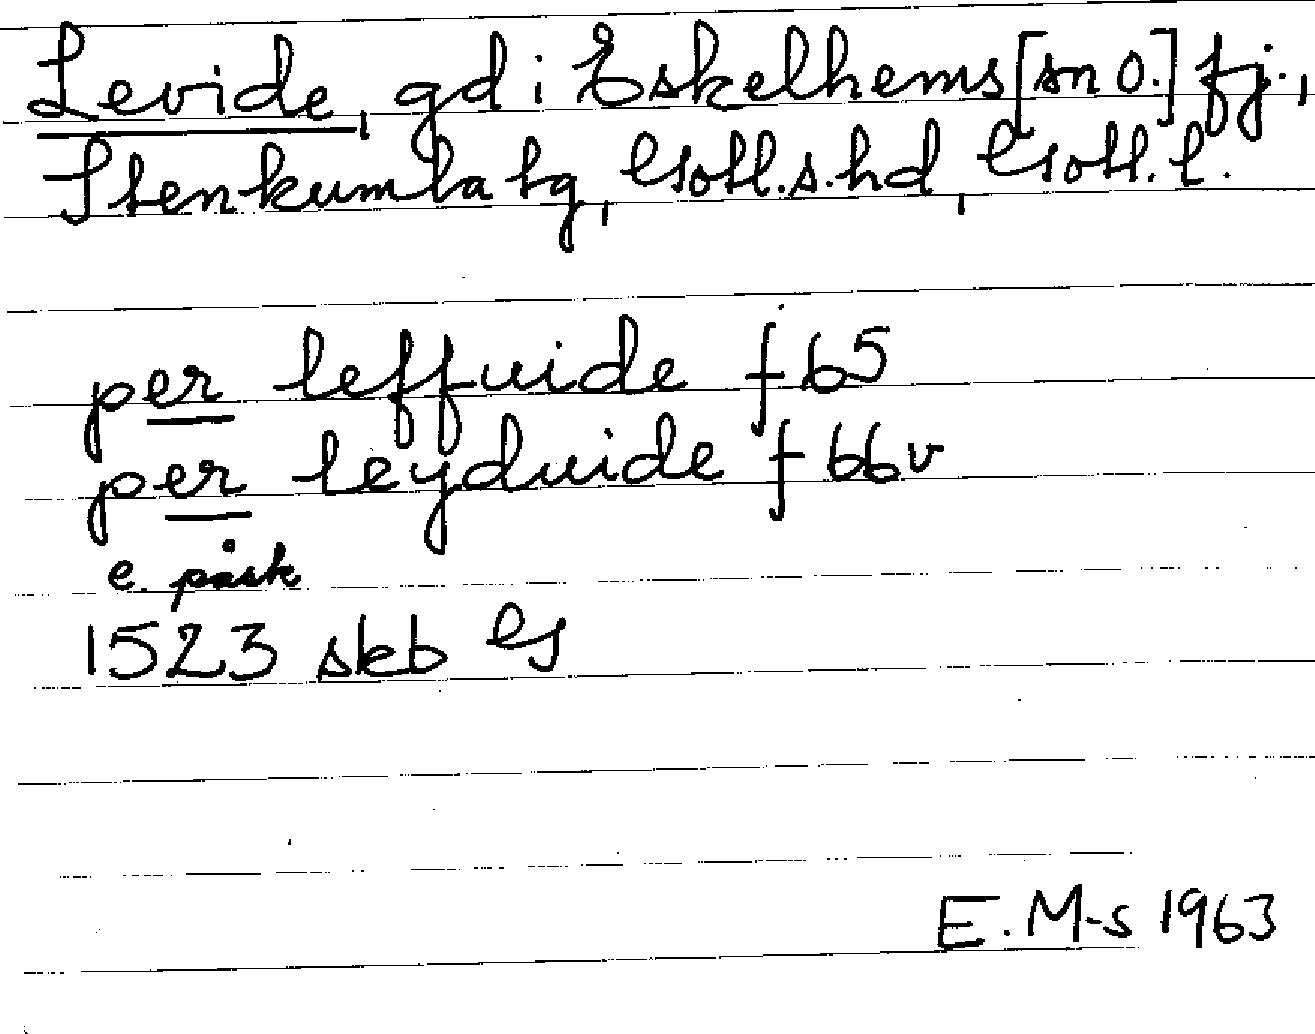 Levide, gd i Eskelhems [sn o.] fj.,
Stenkumla tg, Gotl. s. hd, Gotl. l.
per leffuide f 65
per leyduide f 66v
e. påsk
1523 skb G
E. M-s 1963